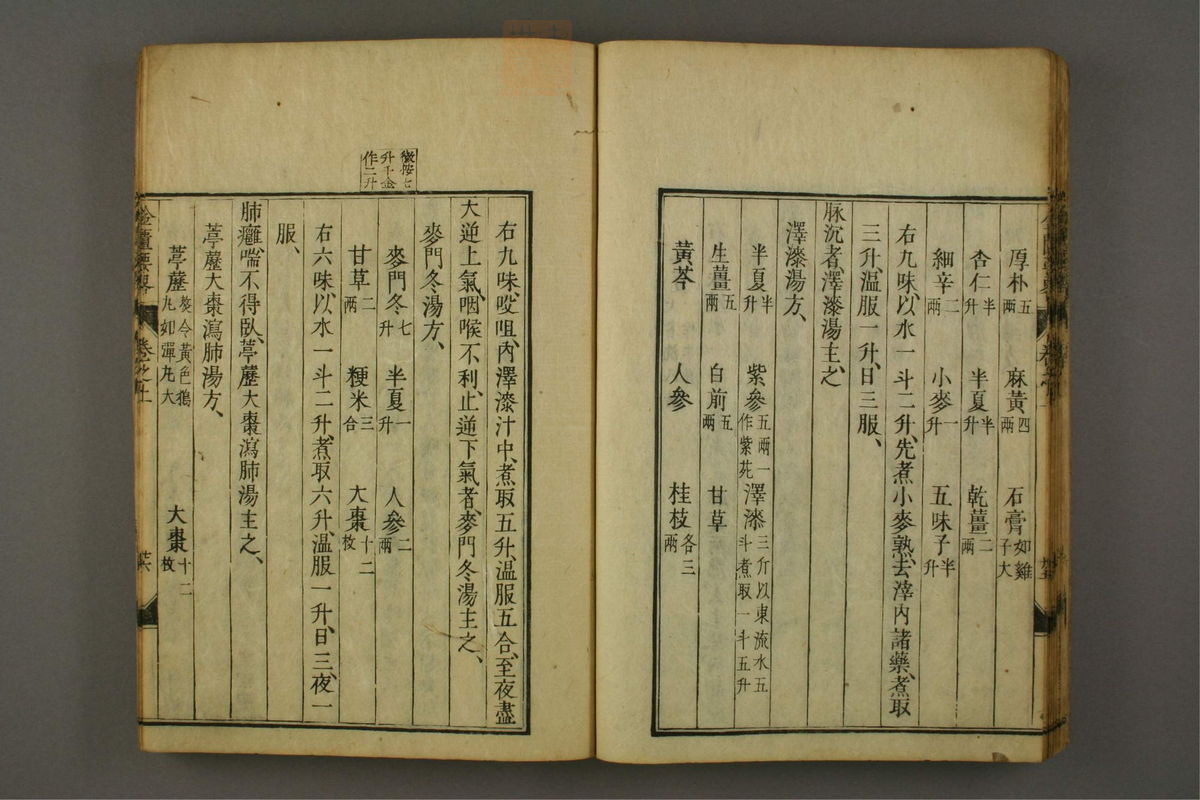 厚朴五兩 麻黃四兩 石膏如雞子大
杏仁半升 半夏半升 乾薑二兩
細辛二兩 小麥一升 五味子半升
右九味、以水一斗二升、先煮小麥熟、去滓、內諸藥、煮取
三升、溫服一升、日三服、
脉沉者、澤漆湯主之、
澤漆湯方、
半夏半升 紫參五兩一作紫苑 澤漆三斤以東流水五斗煮取一斗五升
生薑五兩 白前五兩 甘草
黃芩 人參 桂枝各三兩
右九味、㕮咀、內澤漆汁中、煮取五升、溫服五合、至夜盡
大逆上氣、咽喉不利、止逆下氣者、麥門冬湯主之、
麥門冬湯方、
徵按七升千金作二升
麥門冬七升 半夏一升 人參二兩
甘草二兩 粳米三合 大棗十二枚
右六味、以水一斗二升、煮取六升、溫服一升、日三、夜一
服、
肺癰、喘不得臥、葶藶大棗瀉肺湯主之、
葶藶大棗瀉肺湯方、
葶藶熬令黃色搗丸如彈丸大 大棗十二枚
金匱要畧 卷之上 廿六